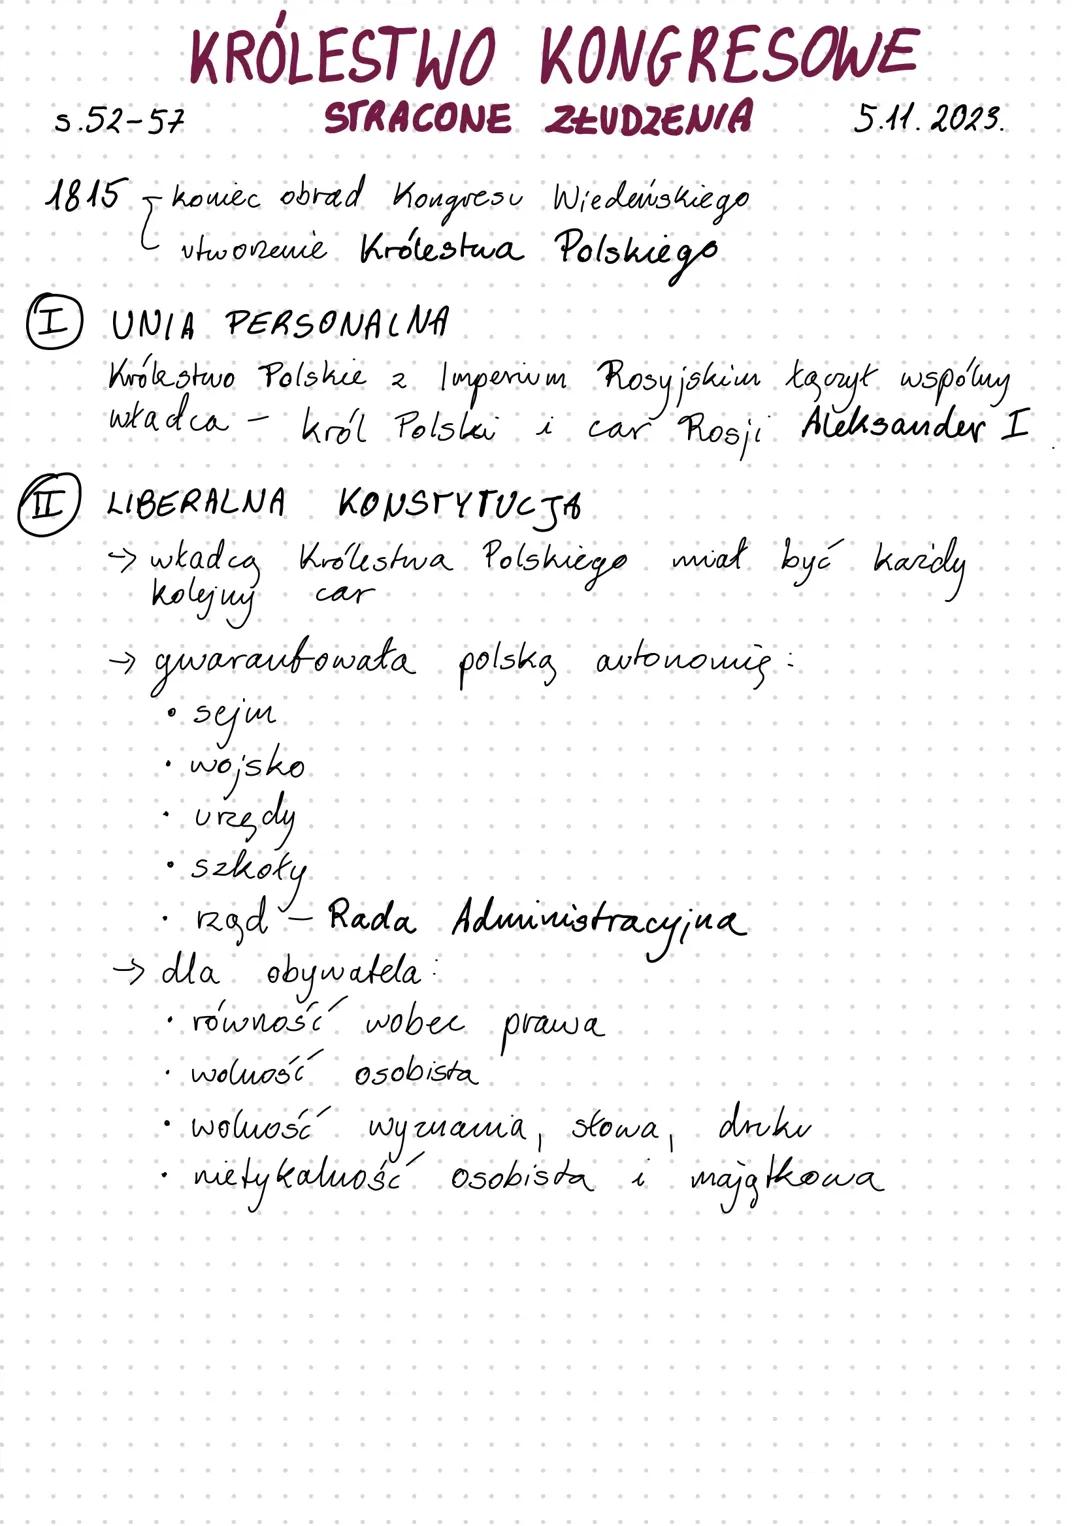 KRÓLESTWO KONGRESOWE
s.52-57 STRACONE ZŁUDZENIA 5.11.2023.
1815 - koniec obrad Kongresu Wiedeńskiego
utworzenie Królestwa Polskiego
I UNIA PERSONALNA
Królestwo Polskie z Imperium Rosyjskim łączył wspólny
władca - król Polski i car Rosji Aleksander I
II LIBERALNA KONSTYTUCJA
→ władcą Królestwa Polskiego miał być każdy
kolejny car
→ gwarantowała polską autonomię:
• sejm
• wojsko
• urzędy
• szkoły
• rząd - Rada Administracyjna
→ dla obywatela:
• równość wobec prawa
• wolność osobista
• wolność wyznania, słowa, druku
• nietykalność osobista i majątkowa